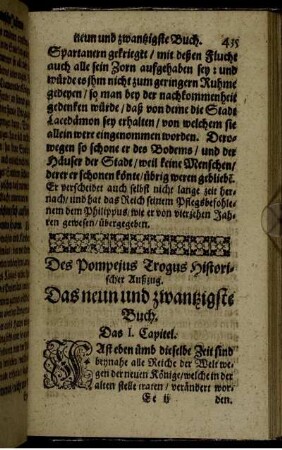 neun und zwantzigste Buch. 435
Spartanern gekrieget / mit deßen Flucht
auch alle sein Zorn auffgehaben sey: und
würde es ihm nicht zum geringern Ruhme
gedeyen / so man bey der nachkommenheit
gedenken würde / daß von deme die Stadt
Lacedämon sey erhalten / von welchem sie
allein were eingenommen worden. Dero-
wegen so schone er des Bodems / und der
Häuser der Stadt / weil keine Menschen /
derer er schonen könte / übrig weren geblieben.
Er verscheidet auch selbst nicht lange zeit her-
nach / und hat das Reich seinem Pflegbefohle-
nem dem Philippus, wie er von vierzehen Jah-
ren gewesen / übergegeben.
Des Pompejus Trogus Histori-
scher Außzug.
Das neun und zwantzigste
Buch.
Das I. Capitel.
FAst eben ümb dieselbe Zeit sind
beynahe alle Reiche der Welt we-
gen der neuen Könige / welche in der
alten stelle traten / verändert wor-
Ee ij den.